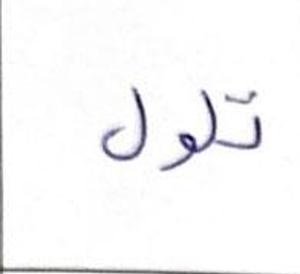 تلول